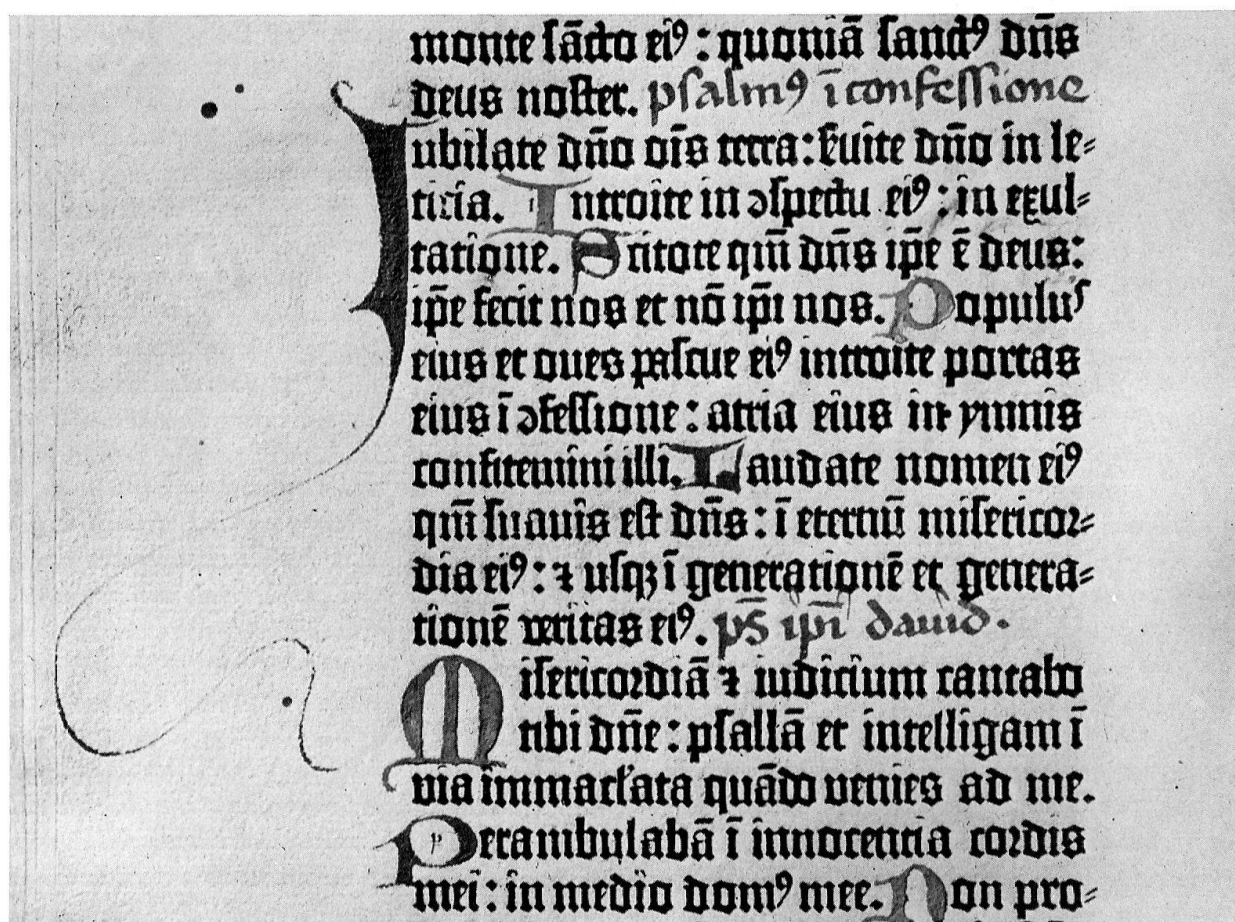 monte sācto ei⁹ : quoniā sanct⁹ dn̄s
deus noster. psalm⁹ ī confessione
Jubilate dn̄o oīs terra : s̄uite dn̄o in le=
ticia. Introite in ↄspectu ei⁹ : in exul=
tatione. Scitote qm̄ dn̄s ip̄e ē deus :
ip̄e fecit nos et nō ip̄i nos. Populus
eius et oues pascue ei⁹ introite portas
eius ī ↄfessione : atria eius in ymnis
confitemini illi. Laudate nomen ei⁹
qm̄ suauis est dn̄s : ī eternū misericor=
dia ei⁹ : ⁊ usqꝫ ī generationē et genera=
tionē veritas ei⁹. ps̄ ip̄i dauid.
Misericordiā ⁊ iudicium cantabo
tibi dn̄e : psallā et intelligam ī
via immac̄lata quādo venies ad me.
Perambulabā ī innocentia cordis
mei : in medio dom⁹ mee. Non pro=